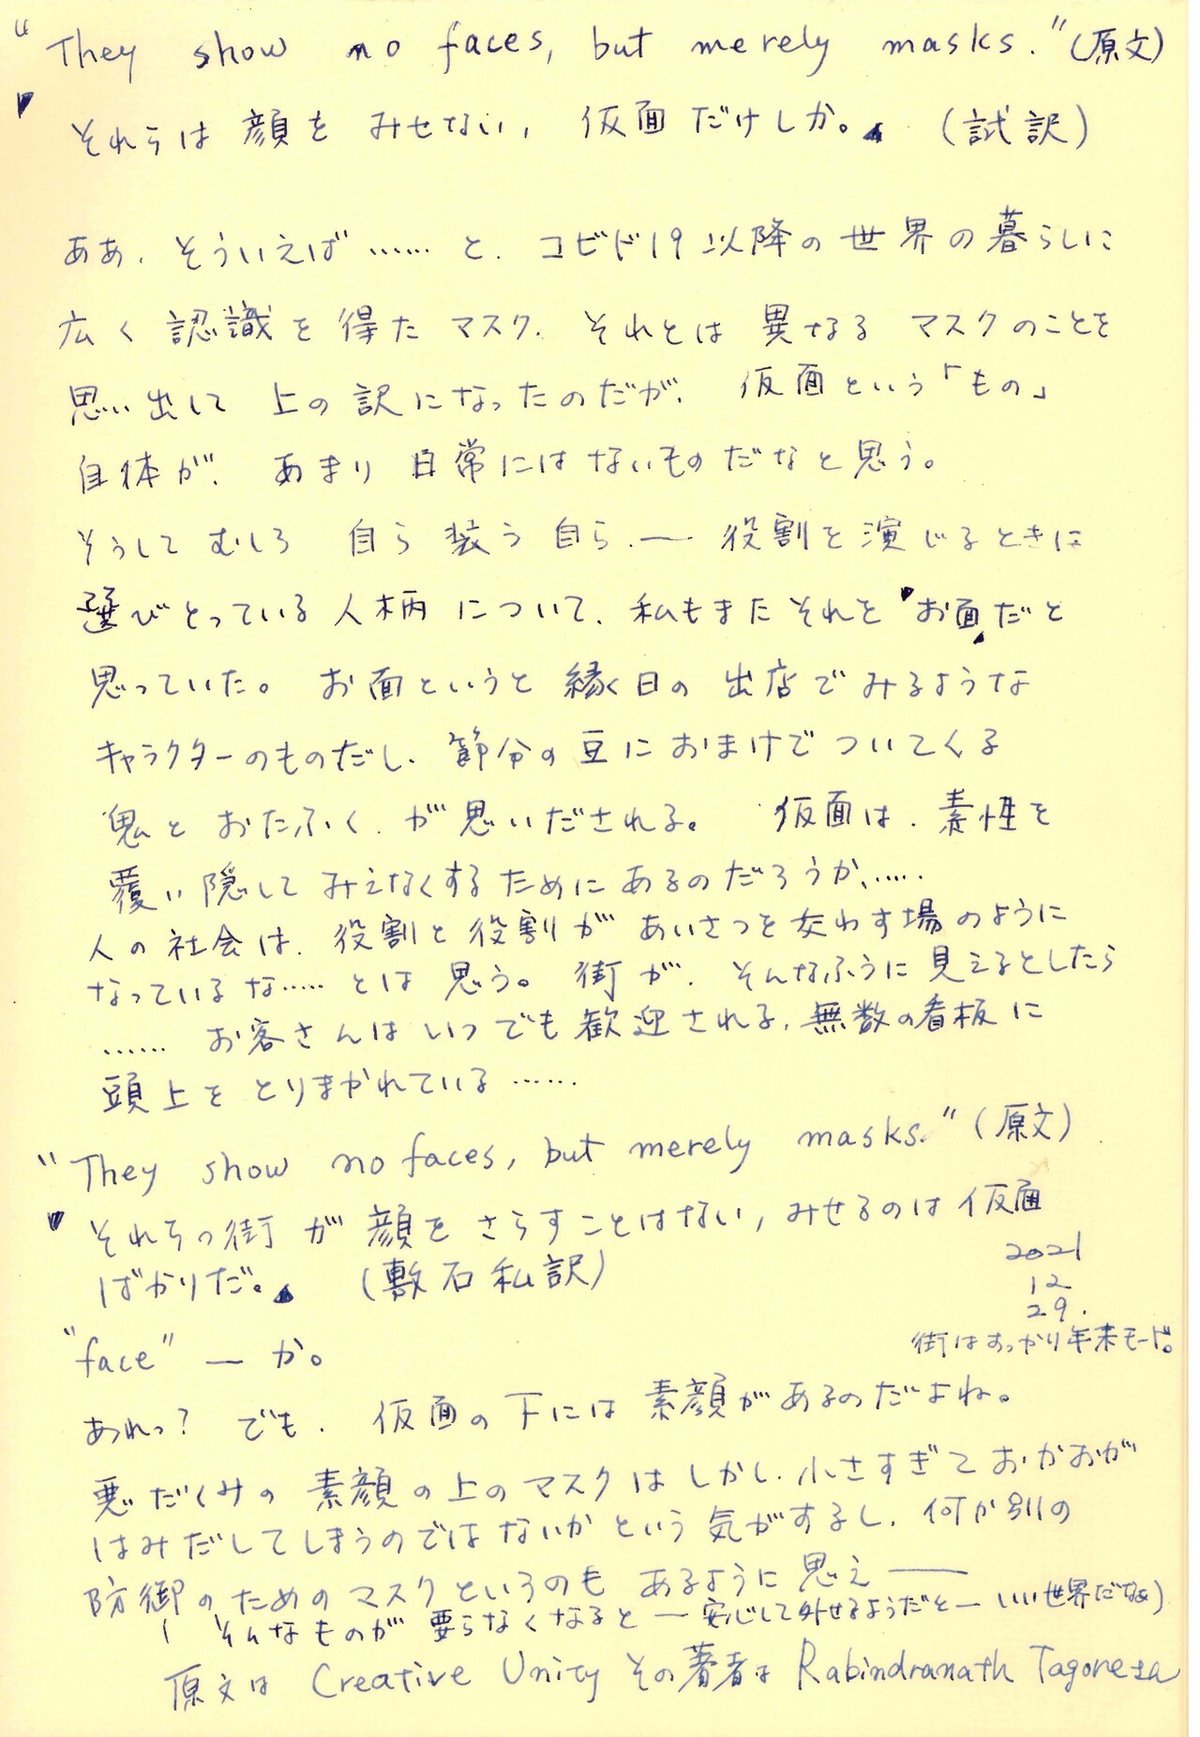 "They show no faces, but merely masks."(原文)
〝それらは顔をみせない, 仮面だけしか。〟 (試訳)
ああ、そういえば……と、コビド19以降の世界の暮らしに
広く認識を得たマスク、それとは異なるマスクのことを
思い出して上の訳になったのだが、仮面という「もの」
自体が、あまり日常にはないものだなと思う。
そうしてむしろ 自ら装う自ら、— 役割を演じるときに
選びとっている人柄について、私もまたそれを〝お面〟だと
思っていた。お面というと縁日の出店でみるような
キャラクターのものだし、節分の豆におまけでついてくる
鬼とおたふく、が思いだされる。 仮面は、素性を
覆い隠してみえなくするためにあるのだろうか、……
人の社会は、役割と役割があいさつを交わす場のように
なっているな……とは思う。街が、そんなふうに見えるとしたら
……お客さんはいつでも歓迎される、無数の看板に
頭上をとりまかれている……
"They show no faces, but merely masks."(原文)
〝それらの街が顔をさらすことはない, みせるのは仮面
ばかりだ。〟 (敷石私訳)
2021
12
29.
街はすっかり年末モード。
"face" — か。
あれっ? でも、仮面の下には素顔があるのだよね。
悪だくみの素顔の上のマスクはしかし、小さすぎておかおが
はみだしてしまうのではないかという気がするし、何か別の
防御のためのマスクというのもあるように思え——
( そんなものが要らなくなると—安心して外せるようだと—いい世界だなぁ)
原文は Creative Unity その著者は Rabindranath Tagoreさん